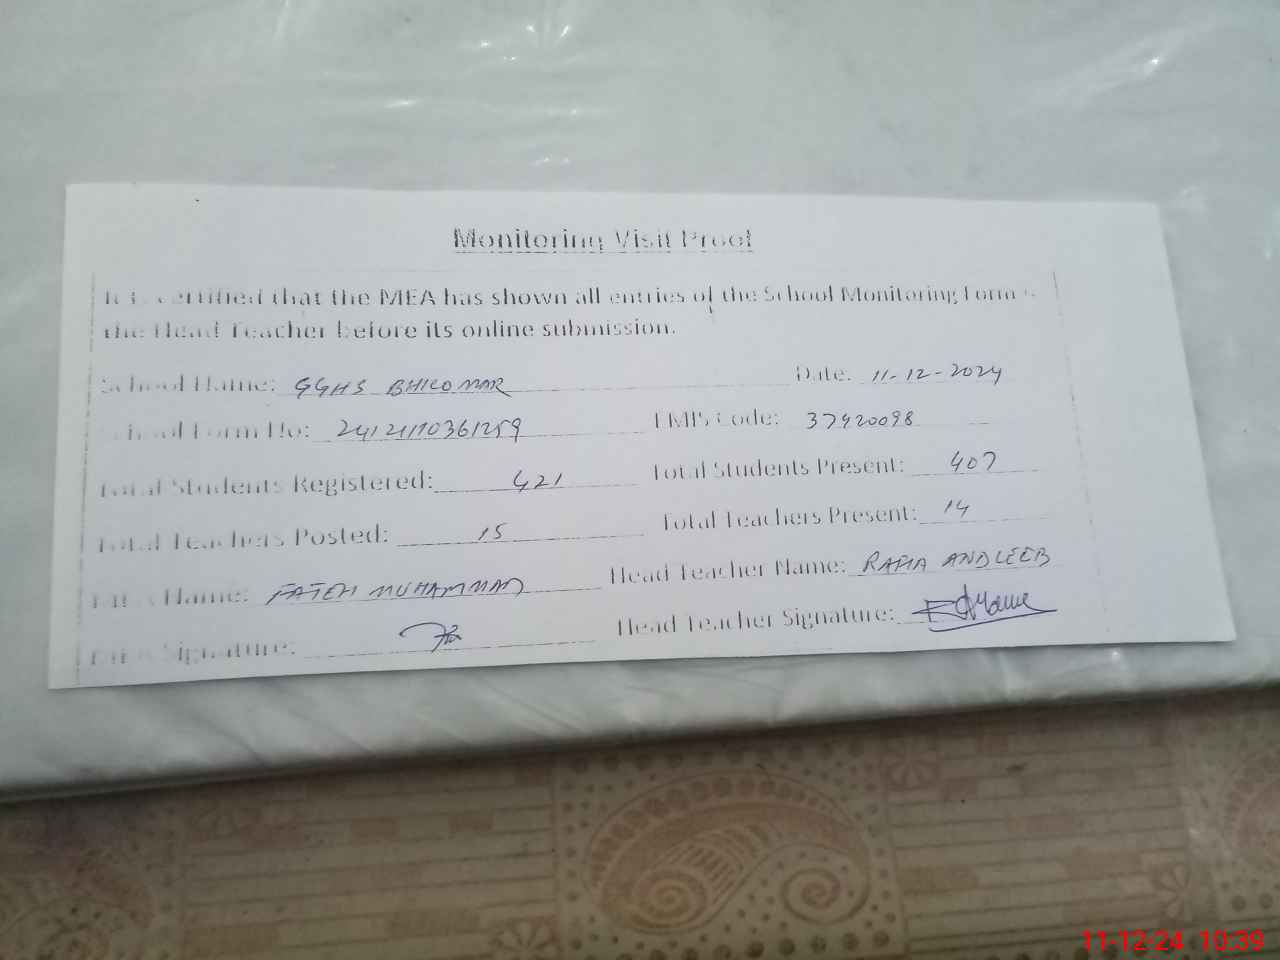 Monitoring Visit Proof
It is certified that the MEA has shown all entries of the School Monitoring Form
the Head Teacher before its online submission.
School Name: GGHS BHILOMAR Date: 11-12-2024
School Form No: 24121110361259 EMIS Code: 37420098
Total Students Registered: 421 Total Students Present: 407
Total Teachers Posted: 15 Total Teachers Present: 14
MEA Name: FATEH MUHAMMAD Head Teacher Name: RAFIA ANDLEEB
MEA Signature: Head Teacher Signature:
11-12-24 10:39